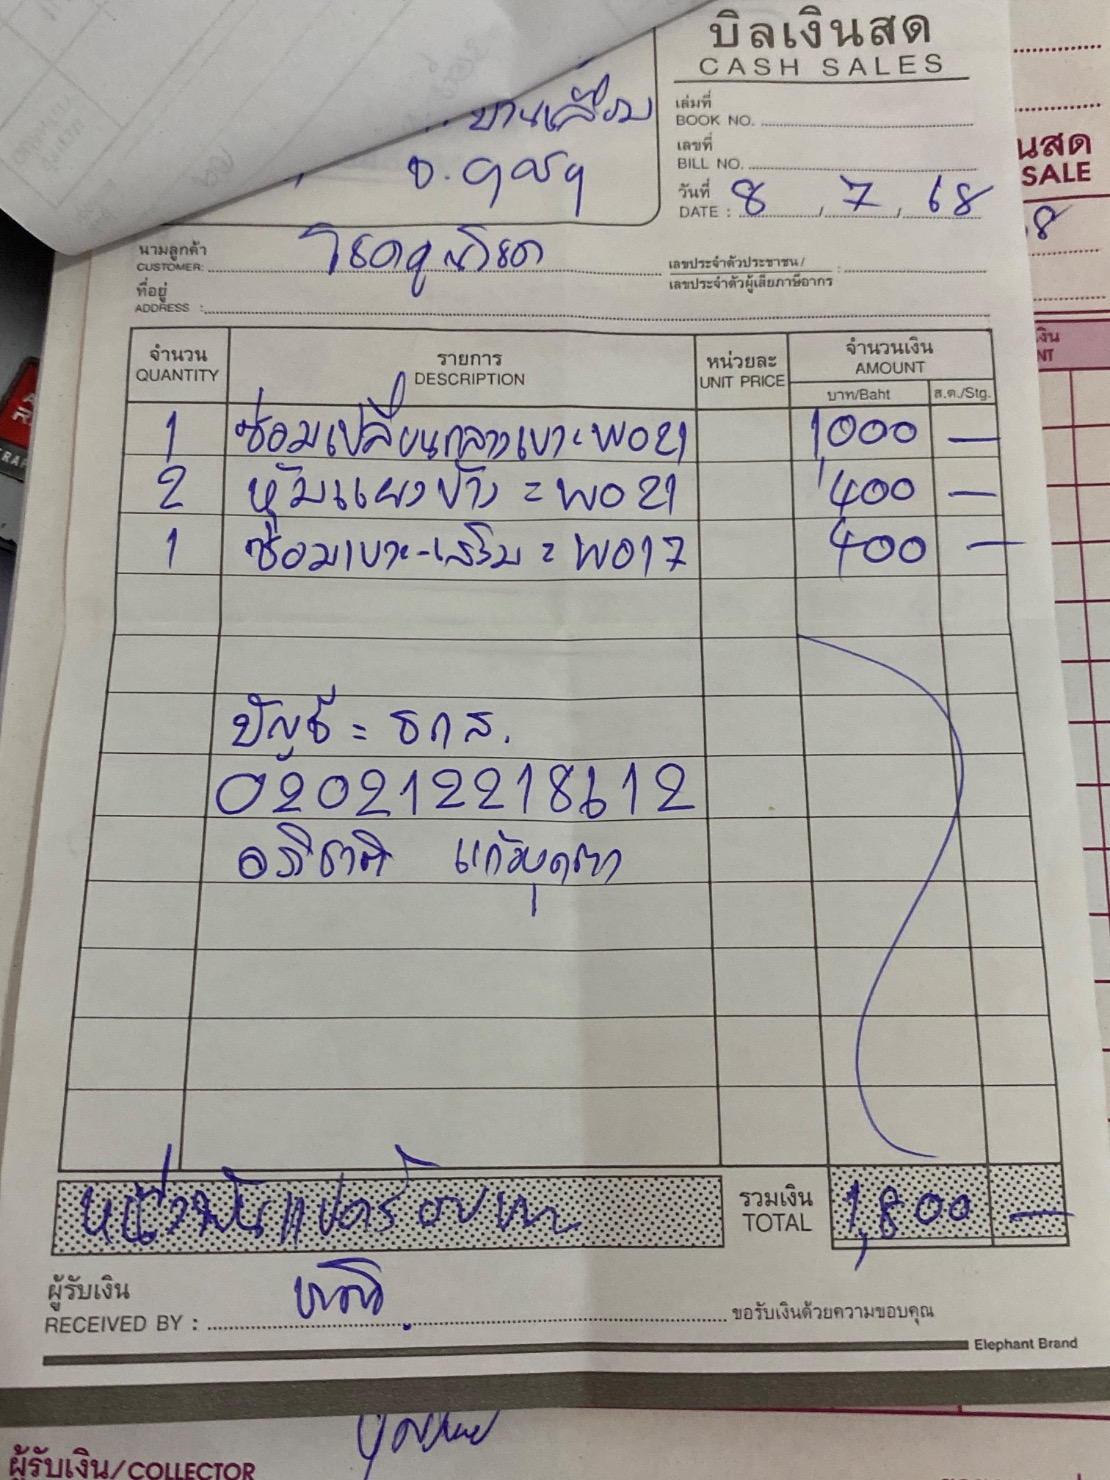 บิลเงินสด
CASH SALES
บ้านเสี้ยว
เล่มที่
BOOK NO.
เลขที่
BILL NO.
วันที่
DATE : 8 / 7 / 68
นามลูกค้า
CUSTOMER:
เลขประจำตัวประชาชน /
เลขประจำตัวผู้เสียภาษีอากร :
ที่อยู่
ADDRESS :
จำนวน รายการ หน่วยละ จำนวนเงิน
QUANTITY DESCRIPTION UNIT PRICE AMOUNT
บาท/Baht ส.ต./Stg.
1 ซ่อมเปลี่ยนกลางเบาะ WO21 1,000 —
2 หุ้มแผงข้าง = WO21 400 —
1 ซ่อมเบาะ-เสริม = WO17 400 —
บัญชี = ธกส.
020212218612
อภิชาติ
หนึ่งพันแปดร้อยบาท รวมเงิน 1,800 —
TOTAL
ผู้รับเงิน
RECEIVED BY : ขอรับเงินด้วยความขอบคุณ
Elephant Brand
ผู้รับเงิน/COLLECTOR
นสด
SALE
8
งิน
NT